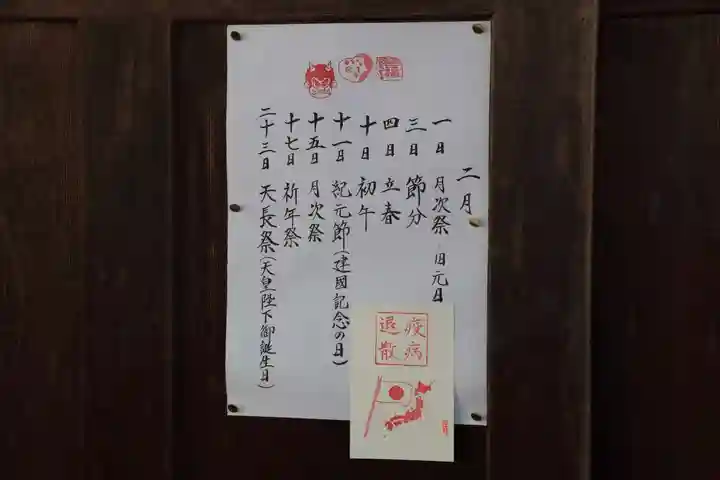 二月
一日 月次祭 旧元日
三日 節分
四日 立春
十日 初午
十一日 紀元節(建國記念の日)
十五日 月次祭
十七日 祈年祭
二十三日 天長祭(天皇陛下御誕生日)
疫病
退散